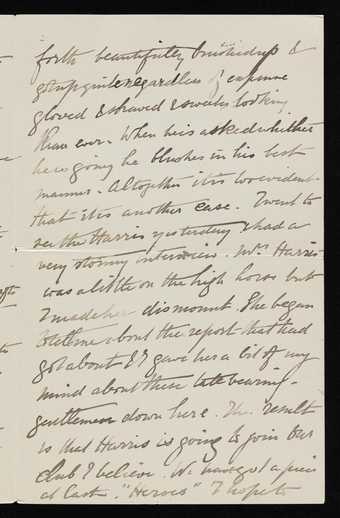 forth beautifully brushed up &
got up quite regardless of expense
gloved & shaved & sweeter looking
than ever. When he is asked whither
he is going he blushes in his best
manner. Altogether it is too evident
that it is another case. I went to
see the Harris yesterday & had a
very stormy interview. Mrs Harris
was a little on the high horse but
I made her dismount. She began
to tell me about the report that had
got about & I gave her a bit of my
mind about these tale bearing
gentlemen down here. The result
is that Harris is going to join our
club I believe. We have got a piece
at last. "Heroes" I hope to